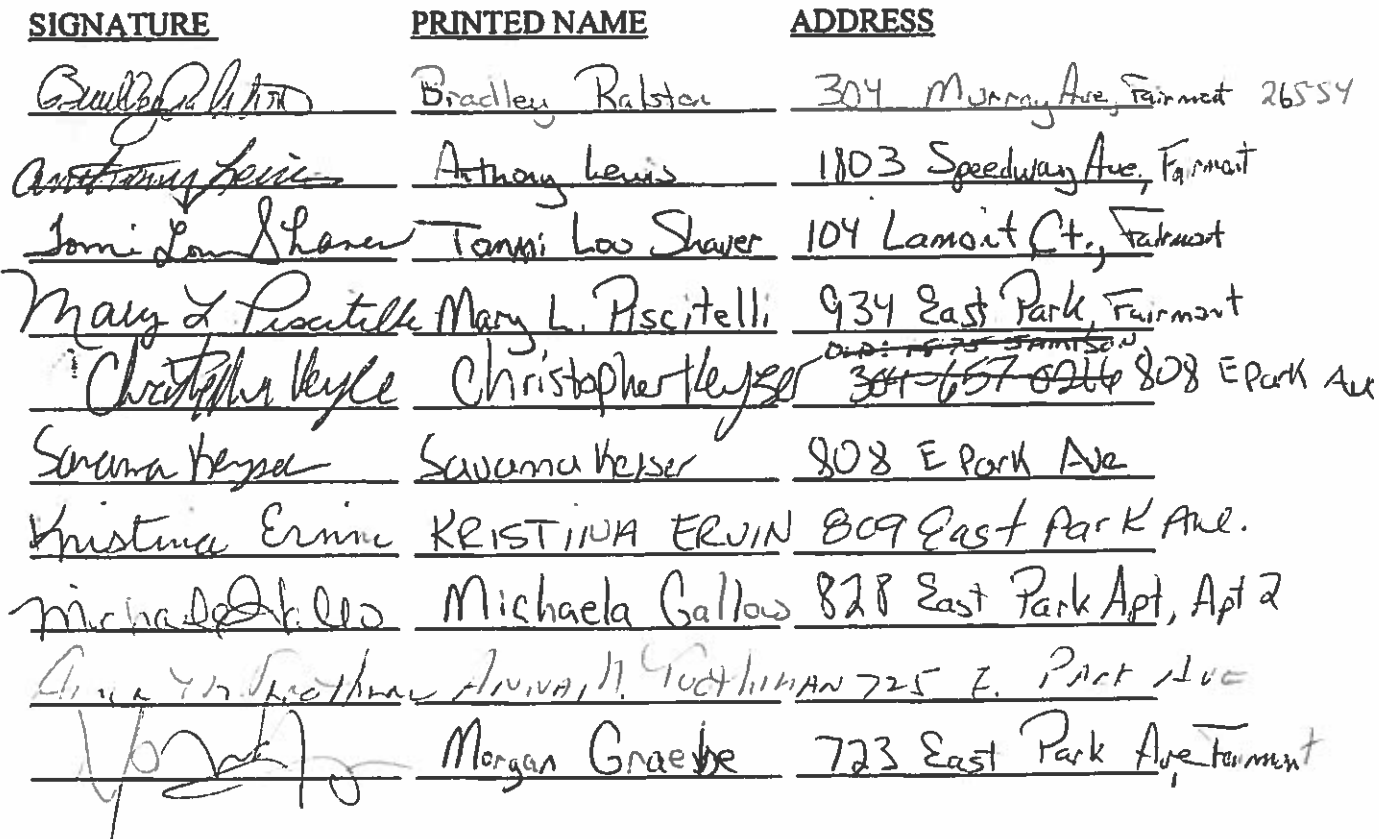 SIGNATURE PRINTED NAME ADDRESS
Bradley Ralston Bradley Ralston 304 Murray Ave, Fairmont 26554
Anthony Lewis Anthony Lewis 1803 Speedway Ave, Fairmont
Tommi Lou Shaver Tommi Lou Shaver 104 Lamont Ct., Fairmont
Mary L Piscitelli Mary L. Piscitelli 934 East Park, Fairmont
Christopher Keyser Christopher Keyser 808 E Park Ave
Savanna Keyser Savanna Keyser 808 E Park Ave
Kristina Ervin KRISTINA ERVIN 809 East Park Ave.
Michaela Gallow 828 East Park Apt, Apt 2
725 E. Park Ave
Morgan Graebe 723 East Park Ave, Fairmont